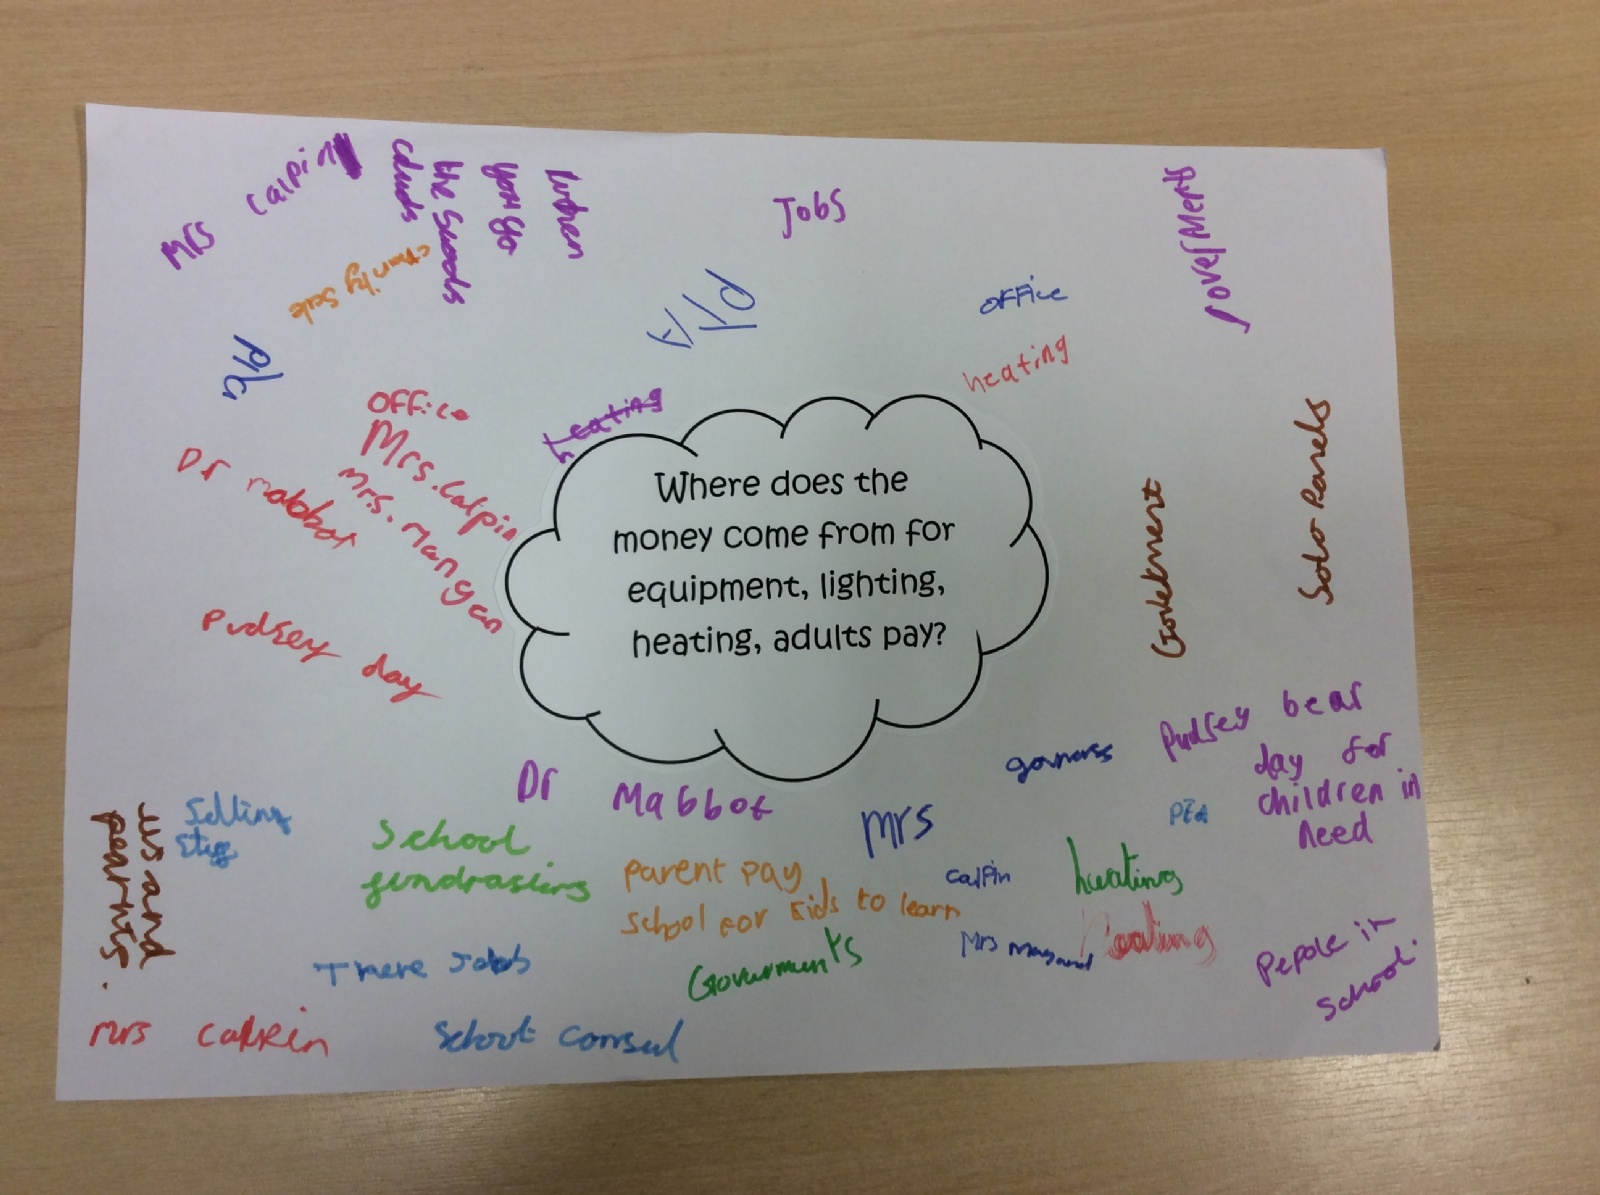 Mrs Calpin
When
you go
the
charity sale
Jobs
P/T/A
office
heating
office
Mrs. Calpin
Mrs. Mangan
Dr mabbot
eating
Where does the
money come from for
equipment, lighting,
heating, adults pay?
Goverment
Solo Panels
Pudsey day
Pudsey bear
day for
children in
need
Dr Mabbot
governess
PTA
Selling
us and
pearnts.
School
fundrasiers
parent pay
school for kids to learn
Mrs
Calpin
heating
Mrs
There Jobs
Goverments
Pepole in
school.
Mrs Calpin
School consul